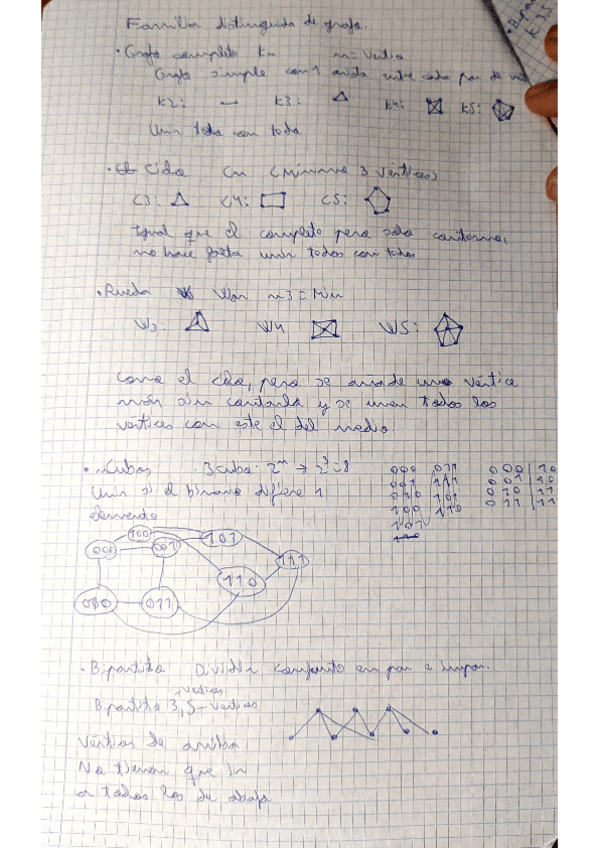 Familia distinguida de grafos.
• Bipart
K 3,5
• Grafo completo Kn n = vértice
Grafo simple con 1 arista entre cada par de vé
K2: K3: K4: K5:
Unir todo con todo
• Ciclo Cn (mínimo 3 vértices)
C3: C4: C5:
Igual que el completo pero solo contorno,
no hace falta unir todos con todos
• Rueda Wn n3 = Min
W3: W4 W5:
Como el ciclo, pero se añade un vértice
más sin contarlo y se unen todos los
vértices con este el del medio.
• nCubos 3cubo: 2ⁿ → 2³=8
Unir si el binario difiere 1
elemento
000 011
001 111
010 101
100 110
101
110
000 10
001 10
010 11
011 11
100 101
000 001 111
110
010 011
• Bipartito Dividir conjunto en par e impar.
vértices
Bipartito 3,5 - vértices
vértices de arriba
No tienen que ir
a todos los de abajo